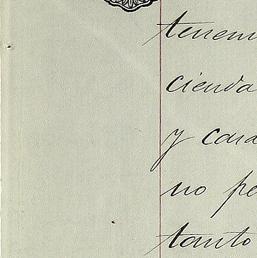 tenem
cienda
y cara
no pe
tanto